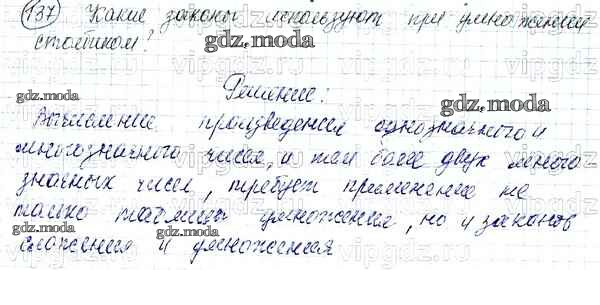 137) Какие законы используют при умножении
столбиком?
gdz.moda
gdz.moda
Решение:
gdz.moda
gdz.moda
Вычисление произведения однозначного и
многозначного чисел, и тем более двух много-
значных чисел, требует применение не
только таблицы умножения, но и законов
gdz.moda
gdz.moda
сложения и умножения
gdz.moda